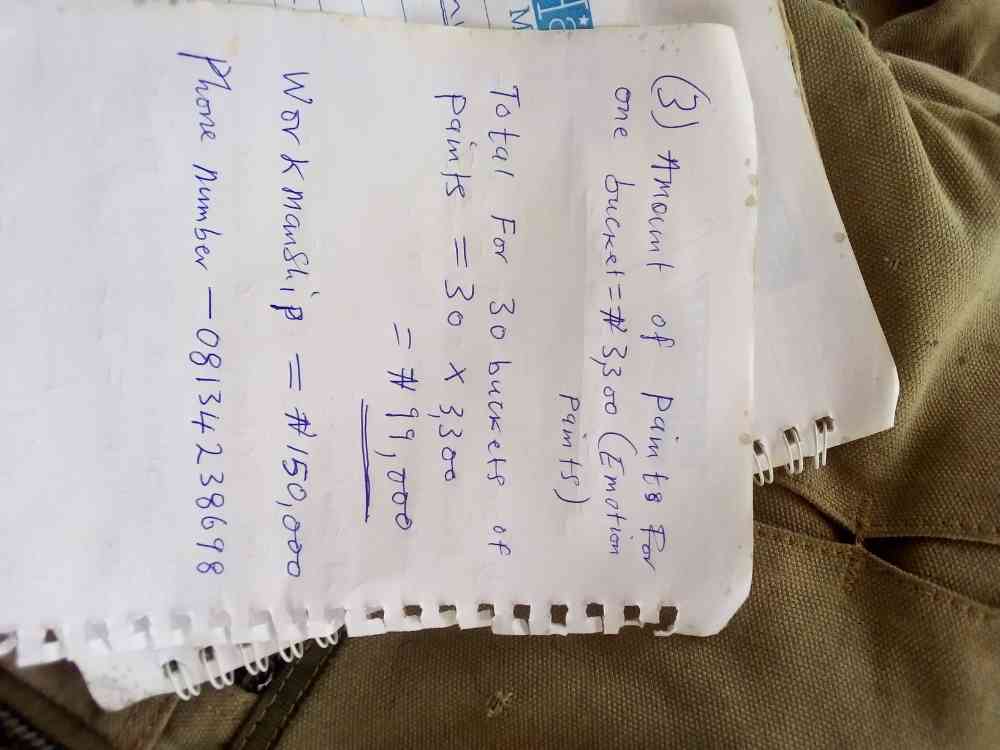 (3) Amount of paints For
one bucket = ₦3,300 (Emotion
paints)
Total For 30 buckets of
paints = 30 x 3,300
= ₦99,000
Workmanship = ₦150,000
Phone number — 08134238698